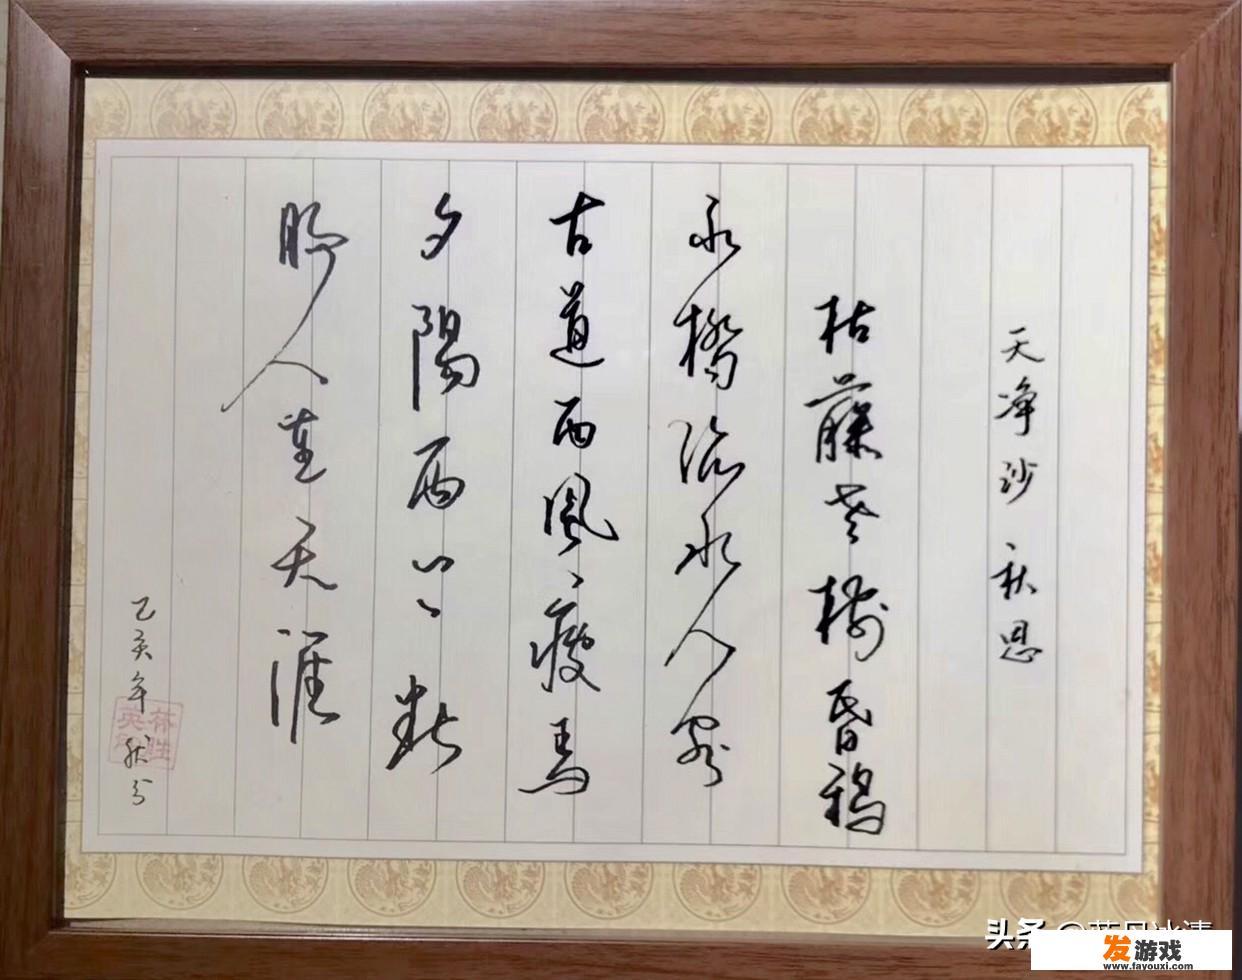 天净沙 秋思
枯藤老樹昏鴉
橋流水人家
古道西風瘦馬
夕陽西下断
腸人在天涯
乙亥年秋分
头条
发游戏
www.fayouxi.com